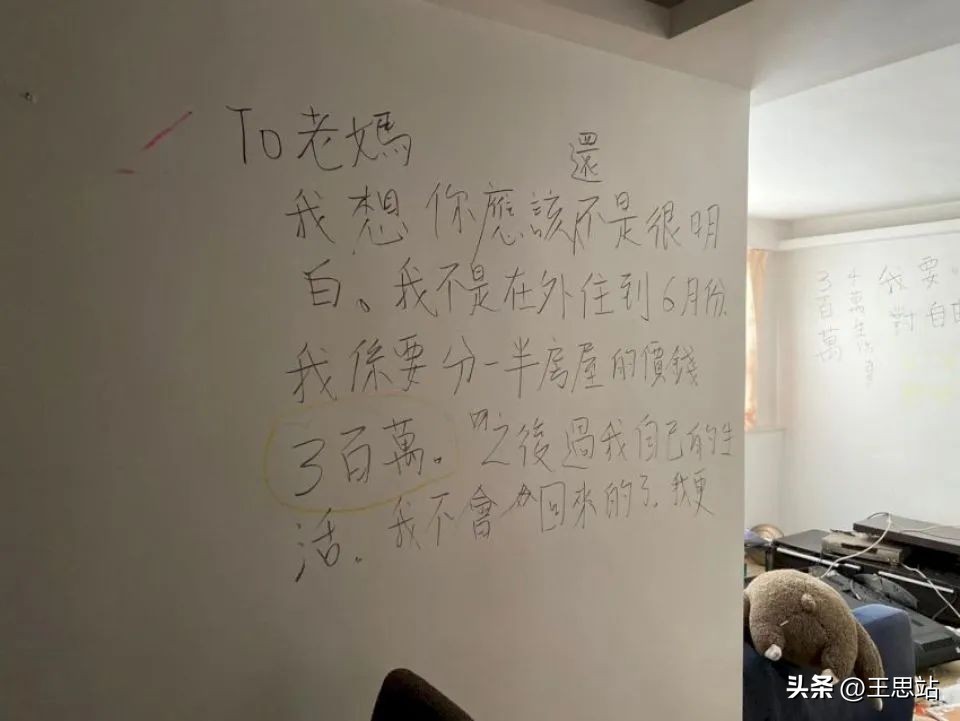 To老媽
還
我想你應該不是很明
白。我不是在外住到6月份
我係要分一半房屋的價錢
3百萬。之後過我自己的生
活。我不會回來的了.我更
我要
對自由
4萬生活費
3百萬
头条 @王思站